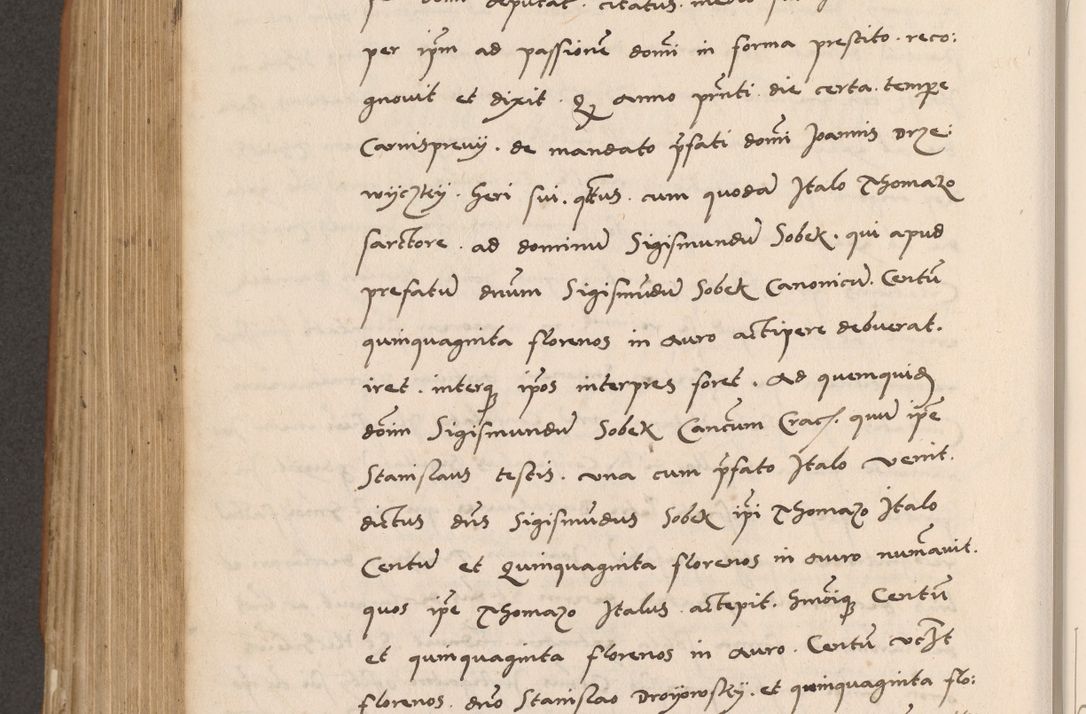 per ip̃m ad passionẽ domi in forma prescito. reco:
gnovit et dixit. Q anno pñti die certa. tempe
Carnisprevij. de mandato p̃fati domi Joannis Drze:
wyczkij. heri sui. cum quodã Italo Thomazo
sartore. ad dominũ Sigismundũ Sobek. qui apud
prefatũ dnum Sigismũdũ Sobek Canonicũ. Centũ
quinquaginta florenos in auro accipere debuerat.
iret. interq ip̃os interpres foret. Ad quemquid
dom̃ Sigismundũ Sobek Canc̃um Crac. quum ip̃e
Stanislaus testis. una cum p̃fato Italo venit.
dictus dñs Sigismũdus Sobek ip̃i Thomazo Italo
Centũ et Quinquaginta florenos in auro numãvit.
quos ip̃e Thomazo Italus accepit. Centũ
et quinquaginta florenos in auro. Centũ
florenos. dño Stanislao Droijowskij. et quinquaginta flo: